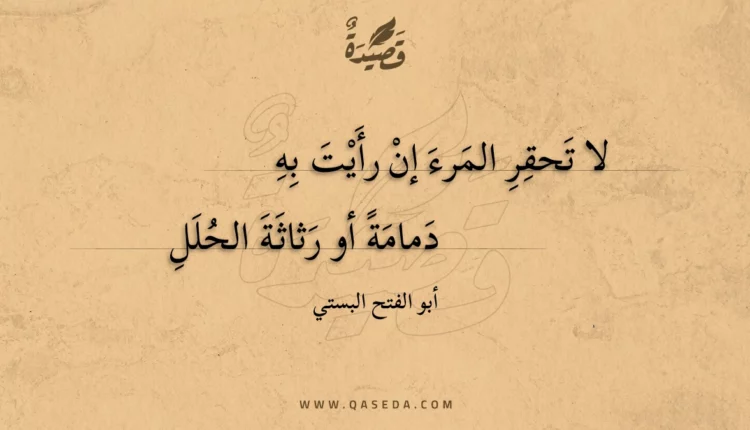 قَصِيْدَةٌ
لا تَحقِرِ المَرءَ إنْ رأَيْتَ بِهِ
دَمامَةً أو رَثاثَةَ الحُلَلِ
أبو الفتح البستي
WWW.QASEDA.COM